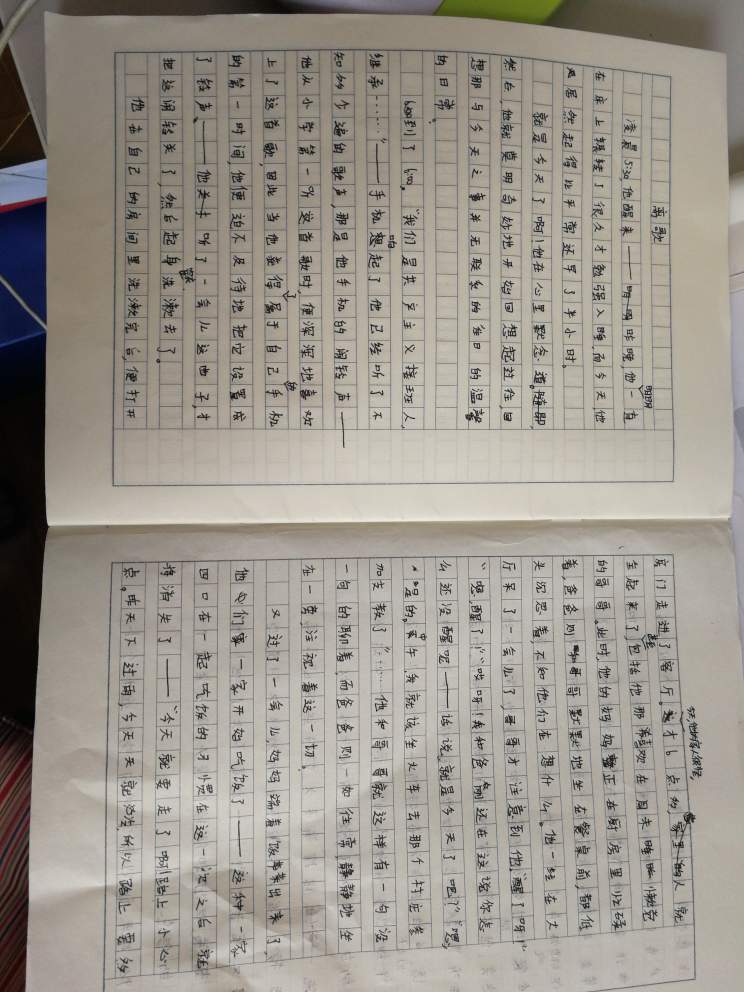 离歌
凌晨5:30他醒来——明明昨晚,他一直
在床上辗转了很久才勉强入睡,而今天他
居然起得比平常还早了半小时。
就是今天了啊!他在心里默念道。随即,
然后,他就莫明奇妙地开始回想起过往,回
想那与今天之事并无联系的往日的温馨
的日常。
到了6:00,“我们是共产主义接班人,
继承……”——手机响起了他已经听了不
知多少遍的歌声,那是他手机的闹铃声——
他从小学第一听这首歌时,便深深地喜欢
上了这首歌,因此当他获得属于自己的手机
的第一时间,他便迫不及待地把它设置成
了铃声。——他听了一会儿这曲子,才
把这闹铃关了,然后起身洗漱去了。
他在自己的房间里洗漱完后,便打开
房门走进了客厅。才6点多,家里的人就
全起来了,包括他那喜欢在周末睡懒觉
的哥哥。此时,他的妈妈正在厨房里忙碌
着,爸爸则和哥哥默默地坐在餐桌前,都低
头沉思着,不知他们在想什么。他一经在大
厅呆了一会儿了,哥哥才注意到他,“醒了呀”
“嗯醒了!”“哎呀!我和爸爸刚还在这说你怎
么还没醒呢——话说,就是今天了吧?”“嗯,
是的。中午我就该坐火车去那个村庄参
加支教了”……他和哥哥就这样有一句没
一句的聊着,而爸爸则一如往常,静静地坐
在一旁,注视着这一切。
又过了一会儿妈妈端着饭菜出来了,
他们一家开始吃饭了——这种一家
四口在一起吃饭的习惯在这一次之后就
将消失了——“今天就要走了啊!路上小心
点。昨天下过雨,今天天就冷,所以路上要多